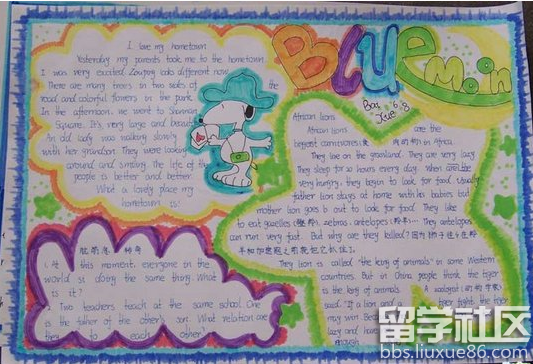 Blue
Moon
Bai
Xue
6.8
I love my hometown
Yesterday my parents took me to the hometown.
I was very excited. Zouping look different now
There are many trees in two sides of the
road and colorful flowers in the park.
In the afternoon, we went to
Square. It's very large and
old lady was walking slowly
with her grandson. They were looking
around and smiling. The life of the
people is better and better.
What a lovely place my
hometown is!
脑筋急转弯
At this moment, everyone in the
world is doing the same thing. What
is it?
Two teachers teach at the same school. One
is the father of the other's son. What relation are
they to each other
African lions
African lions are the
largest carnivores in Africa.
They live on the grassland. They are very lazy
They sleep for 20 hours every day. When are the
very hungry, they begin to look for food. Usually
father lion stays at home with his babies but
mother lion goes out to look for food. They like
to eat gazelles zebras, antelopes They antelopes
can run very fast. But why are they killed?
They lion is called "the king of animals" in some Western
countries. But in China people think the tiger
is the king of animals. A
said: "If a lion and a tiger fight, the tiger
may win.
lazy and have
enough
留学社区
bbs.liuxue86.com